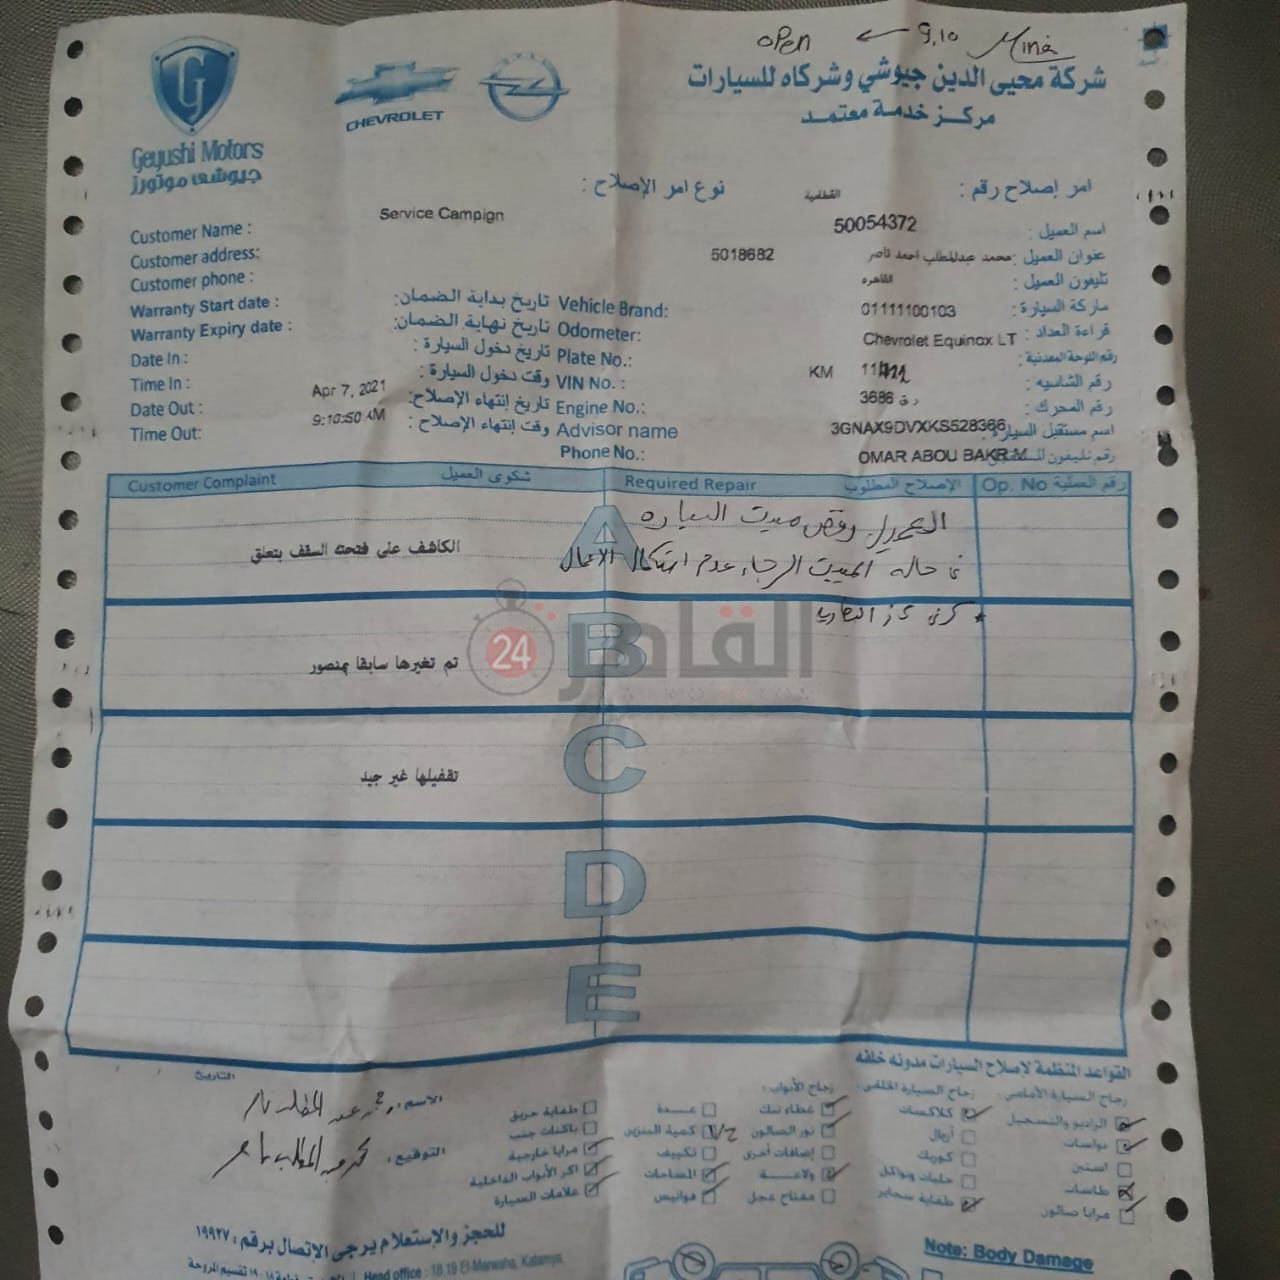 open ← 9,10 Mina
شركة محيى الدين جيوشي وشركاه للسيارات
مركز خدمة معتمد
Geyushi Motors
جيوشى موتورز
CHEVROLET
OPEL
امر إصلاح رقم :
القطامية
نوع امر الإصلاح :
Service Campign
Customer Name :
50054372
اسم العميل :
Customer address:
5018682
محمد عبدالمطلب احمد ناصر
عنوان العميل :
Customer phone :
القاهره
تليفون العميل :
Warranty Start date :
تاريخ بداية الضمان:
Vehicle Brand:
01111100103
ماركة السيارة :
Warranty Expiry date :
تاريخ نهاية الضمان:
Odometer:
Chevrolet Equinox LT
قراءة العداد :
Date In :
تاريخ دخول السيارة :
Plate No.:
KM
رقم اللوحة المعدنية:
Time In :
Apr 7, 2021
وقت دخول السيارة :
VIN No. :
3686 ر ق
رقم الشاسيه :
Date Out :
9:10:50 AM
تاريخ إنتهاء الإصلاح:
Engine No.:
3GNAX9DVXKS528366
رقم المحرك :
Time Out:
وقت إنتهاء الإصلاح :
Advisor name
OMAR ABOU BAKR M
اسم مستقبل السيارة :
Phone No.:
Customer Complaint
شكوى العميل
Required Repair
الإصلاح المطلوب
Op. No
رقم العملية
السياره
الكاشف على فتحته السقف بتعلق
A
فى حاله المبيت الرجاء عدم استكمال الاعمال
تم تغيرها سابقا بمنصور
B
القاهرة 24
تقفيلها غير جيد
C
D
E
القواعد المنظمة لإصلاح السيارات مدونه خلفه
التاريخ
زجاج السيارة الأمامى :
زجاج السيارة الخلفى :
زجاج الأبواب :
الاسم :
محمد عبد المطلب ناصر
الراديو والتسجيل
كلاكسات
غطاء تنك
عدة
طفاية حريق
دواسات
أريال
نور الصالون
كمية البنزين
1/2
باكتات جنب
استبن
كوريك
إضافات أخرى
تكييف
مرايا خارجية
التوقيع :
محمد عبد المطلب ناصر
طاسات
حليات ونواكل
ولاعة
المساحات
اكر الأبواب الداخلية
مرايا صالون
طفاية سجاير
مفتاح عجل
فوانيس
علامات السيارة
للحجز والإستعلام يرجى الإتصال برقم : ١٩٩٢٧
Head office : 18,19 El-Marwaha, Katamya,
Note: Body Damage